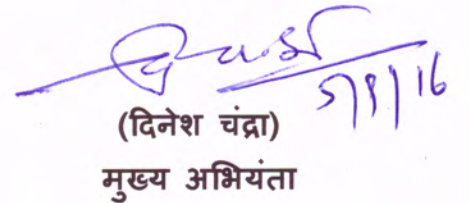 5/1/16
(दिनेश चंद्रा)
मुख्य अभियंता